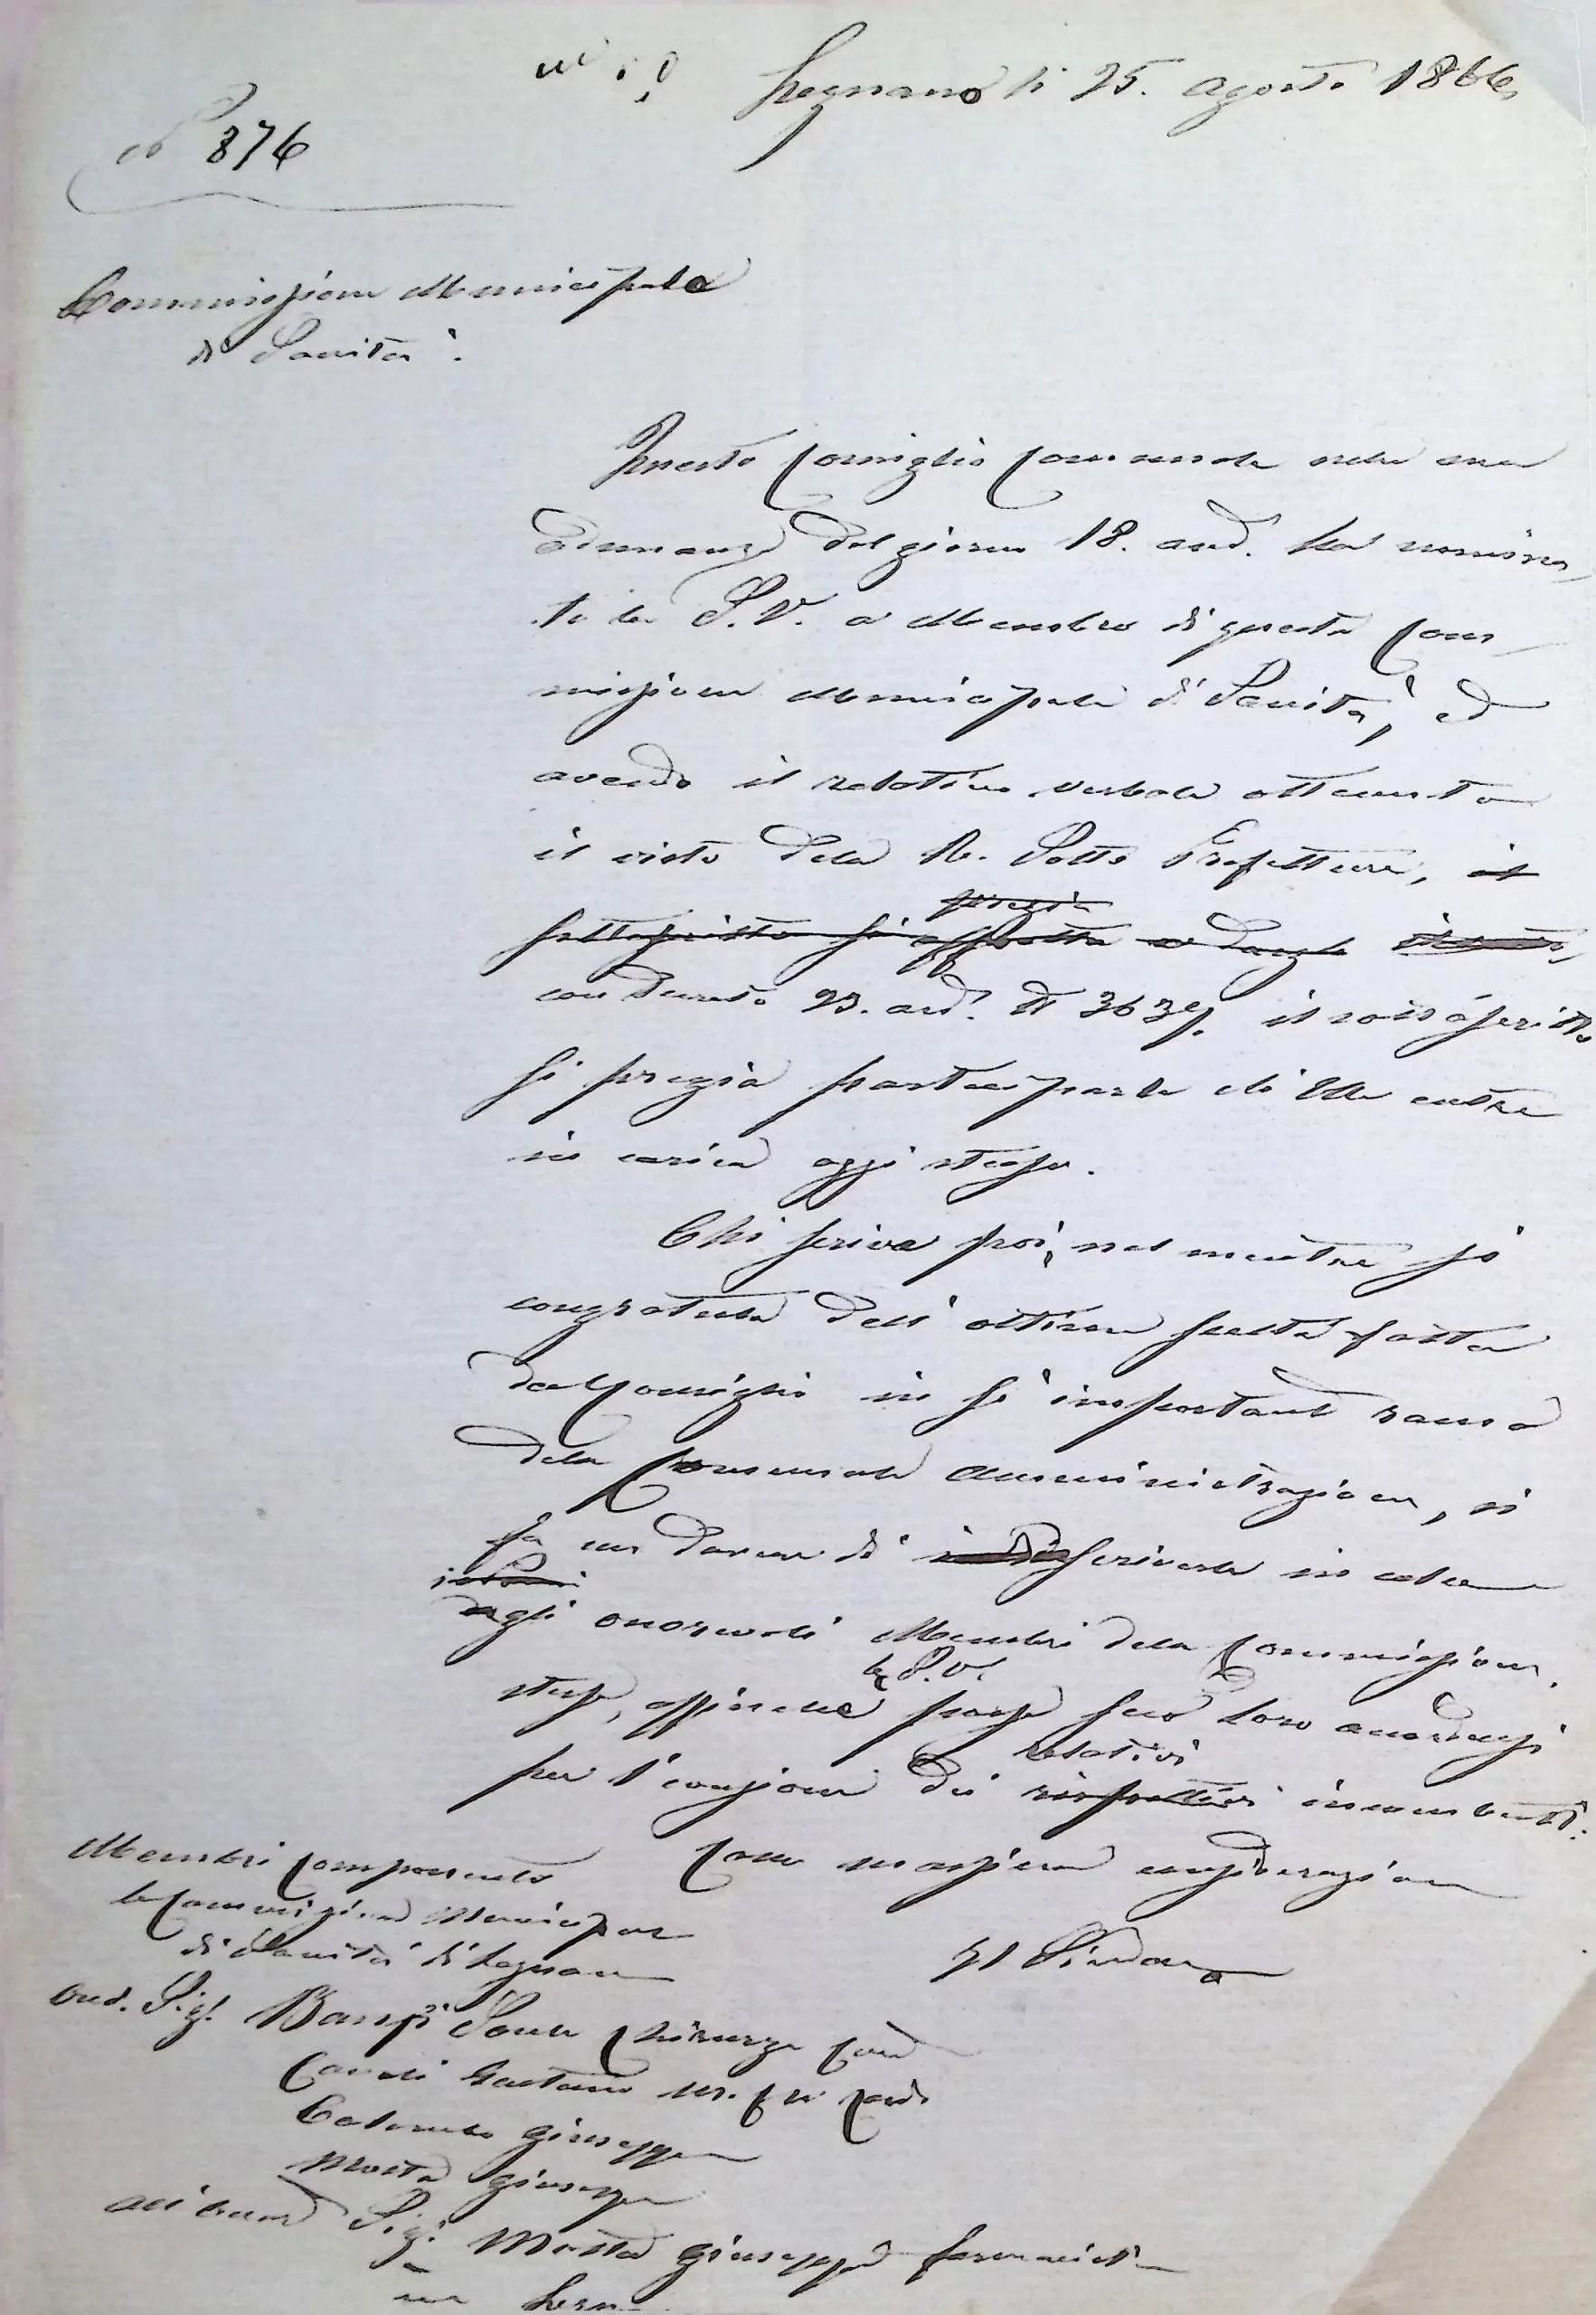 Legnano li 25. agosto 1866
N° 876
Commissione Municipale
di Sanità.
Questo Consiglio Comunale nella sua
adunanza del giorno 18. and. ha nomina
to la S.V. a Membro di questa Com
missione Municipale di Sanità, ed
avendo il relativo verbale ottenuto
il visto della R. Sotto Prefettura, il
pregia
sottoscritto si affretta
con Decreto 23. and. N 3639. il sottoscritto
si pregia parteciparle ch'Ella entra
in carica oggi stesso.
Chi scrive poi, nel mentre si
congratula dell'ottima scelta fatta
dal Consiglio in sì importante ramo
della Comunale Amministrazione, si
fa un dovere di inscriverle in calce
i nomi
degli onorevoli Membri della Commissione
la S.V.
stessa, affinché possa seco loro accordarsi
relativi
per l'evasione dei rispettivi incombenti.
Con massima considerazione
Il Sindaco
Membri componenti
la Commissione Municipale
di Sanità di Legnano
Sig. Bampi Sante Chirurgo Cond
Gaetano
Colombo Giuseppe
Mosta Giuseppe
Sig. Mosta Giuseppe farmacista